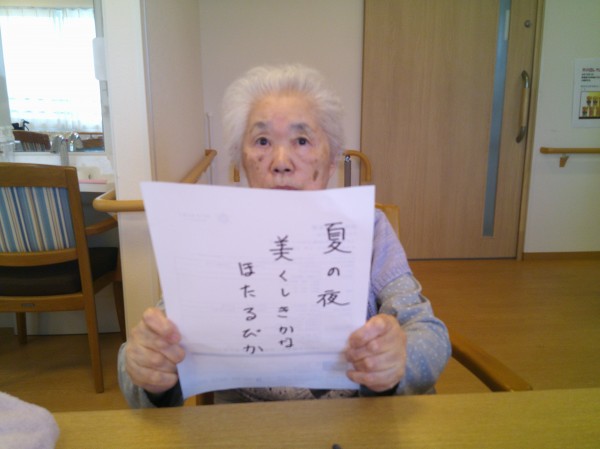 夏の夜
美くしきかな
ほたるびか